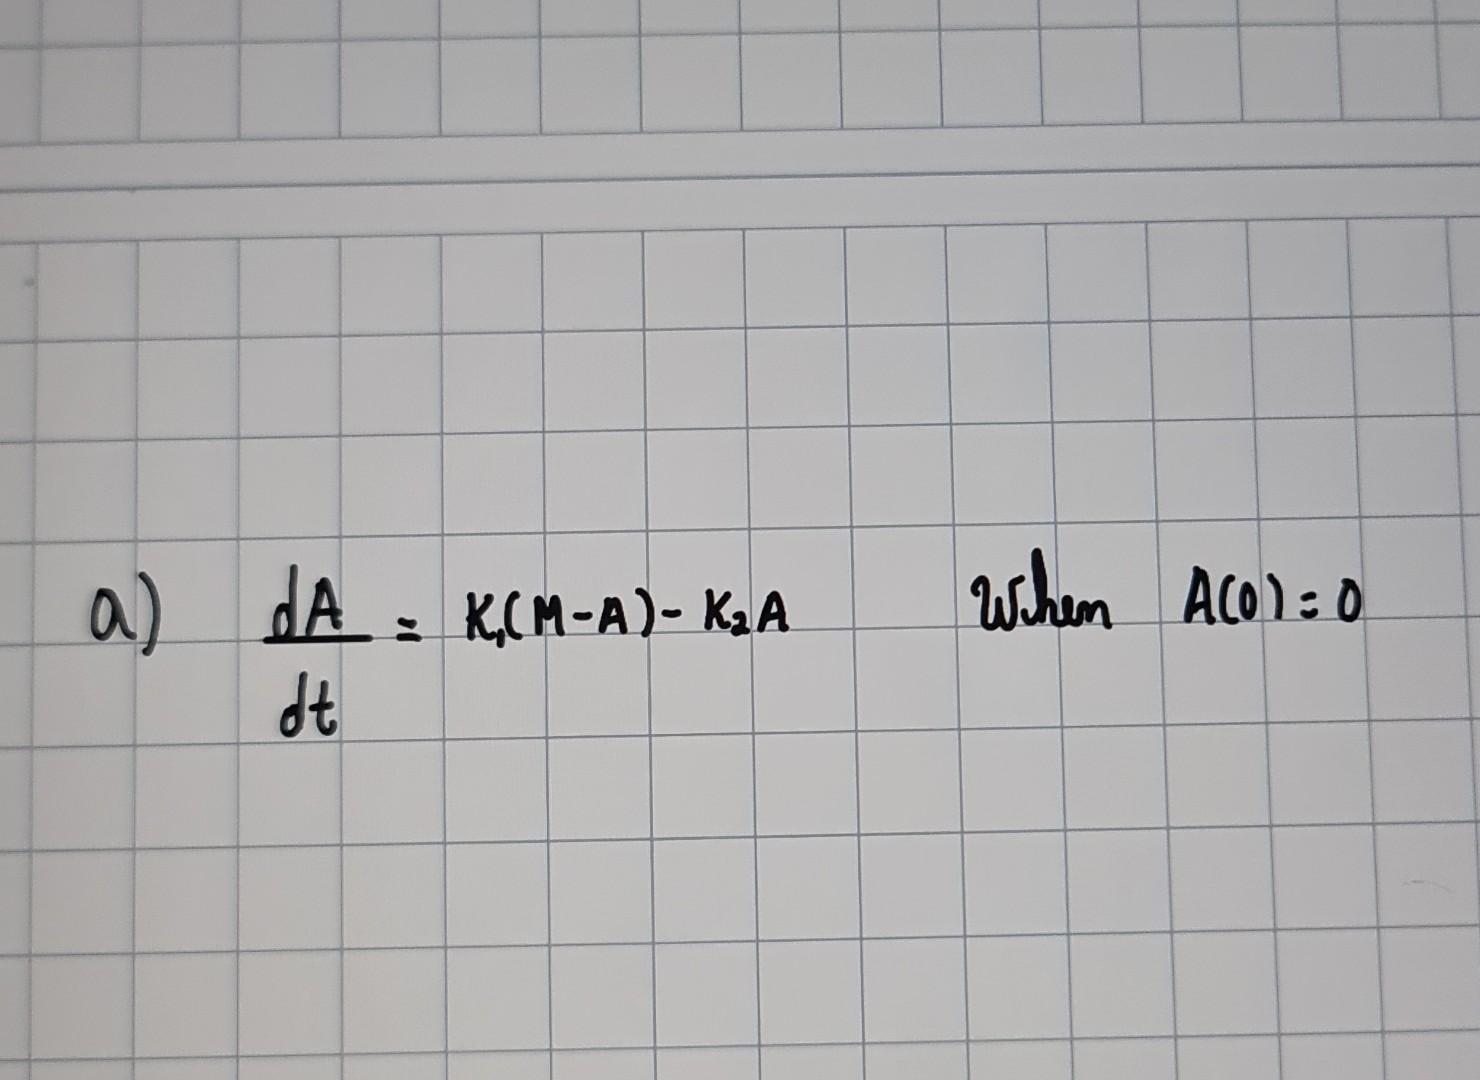 a) dA/dt = K₁(M-A)- K₂A When A(0)=0